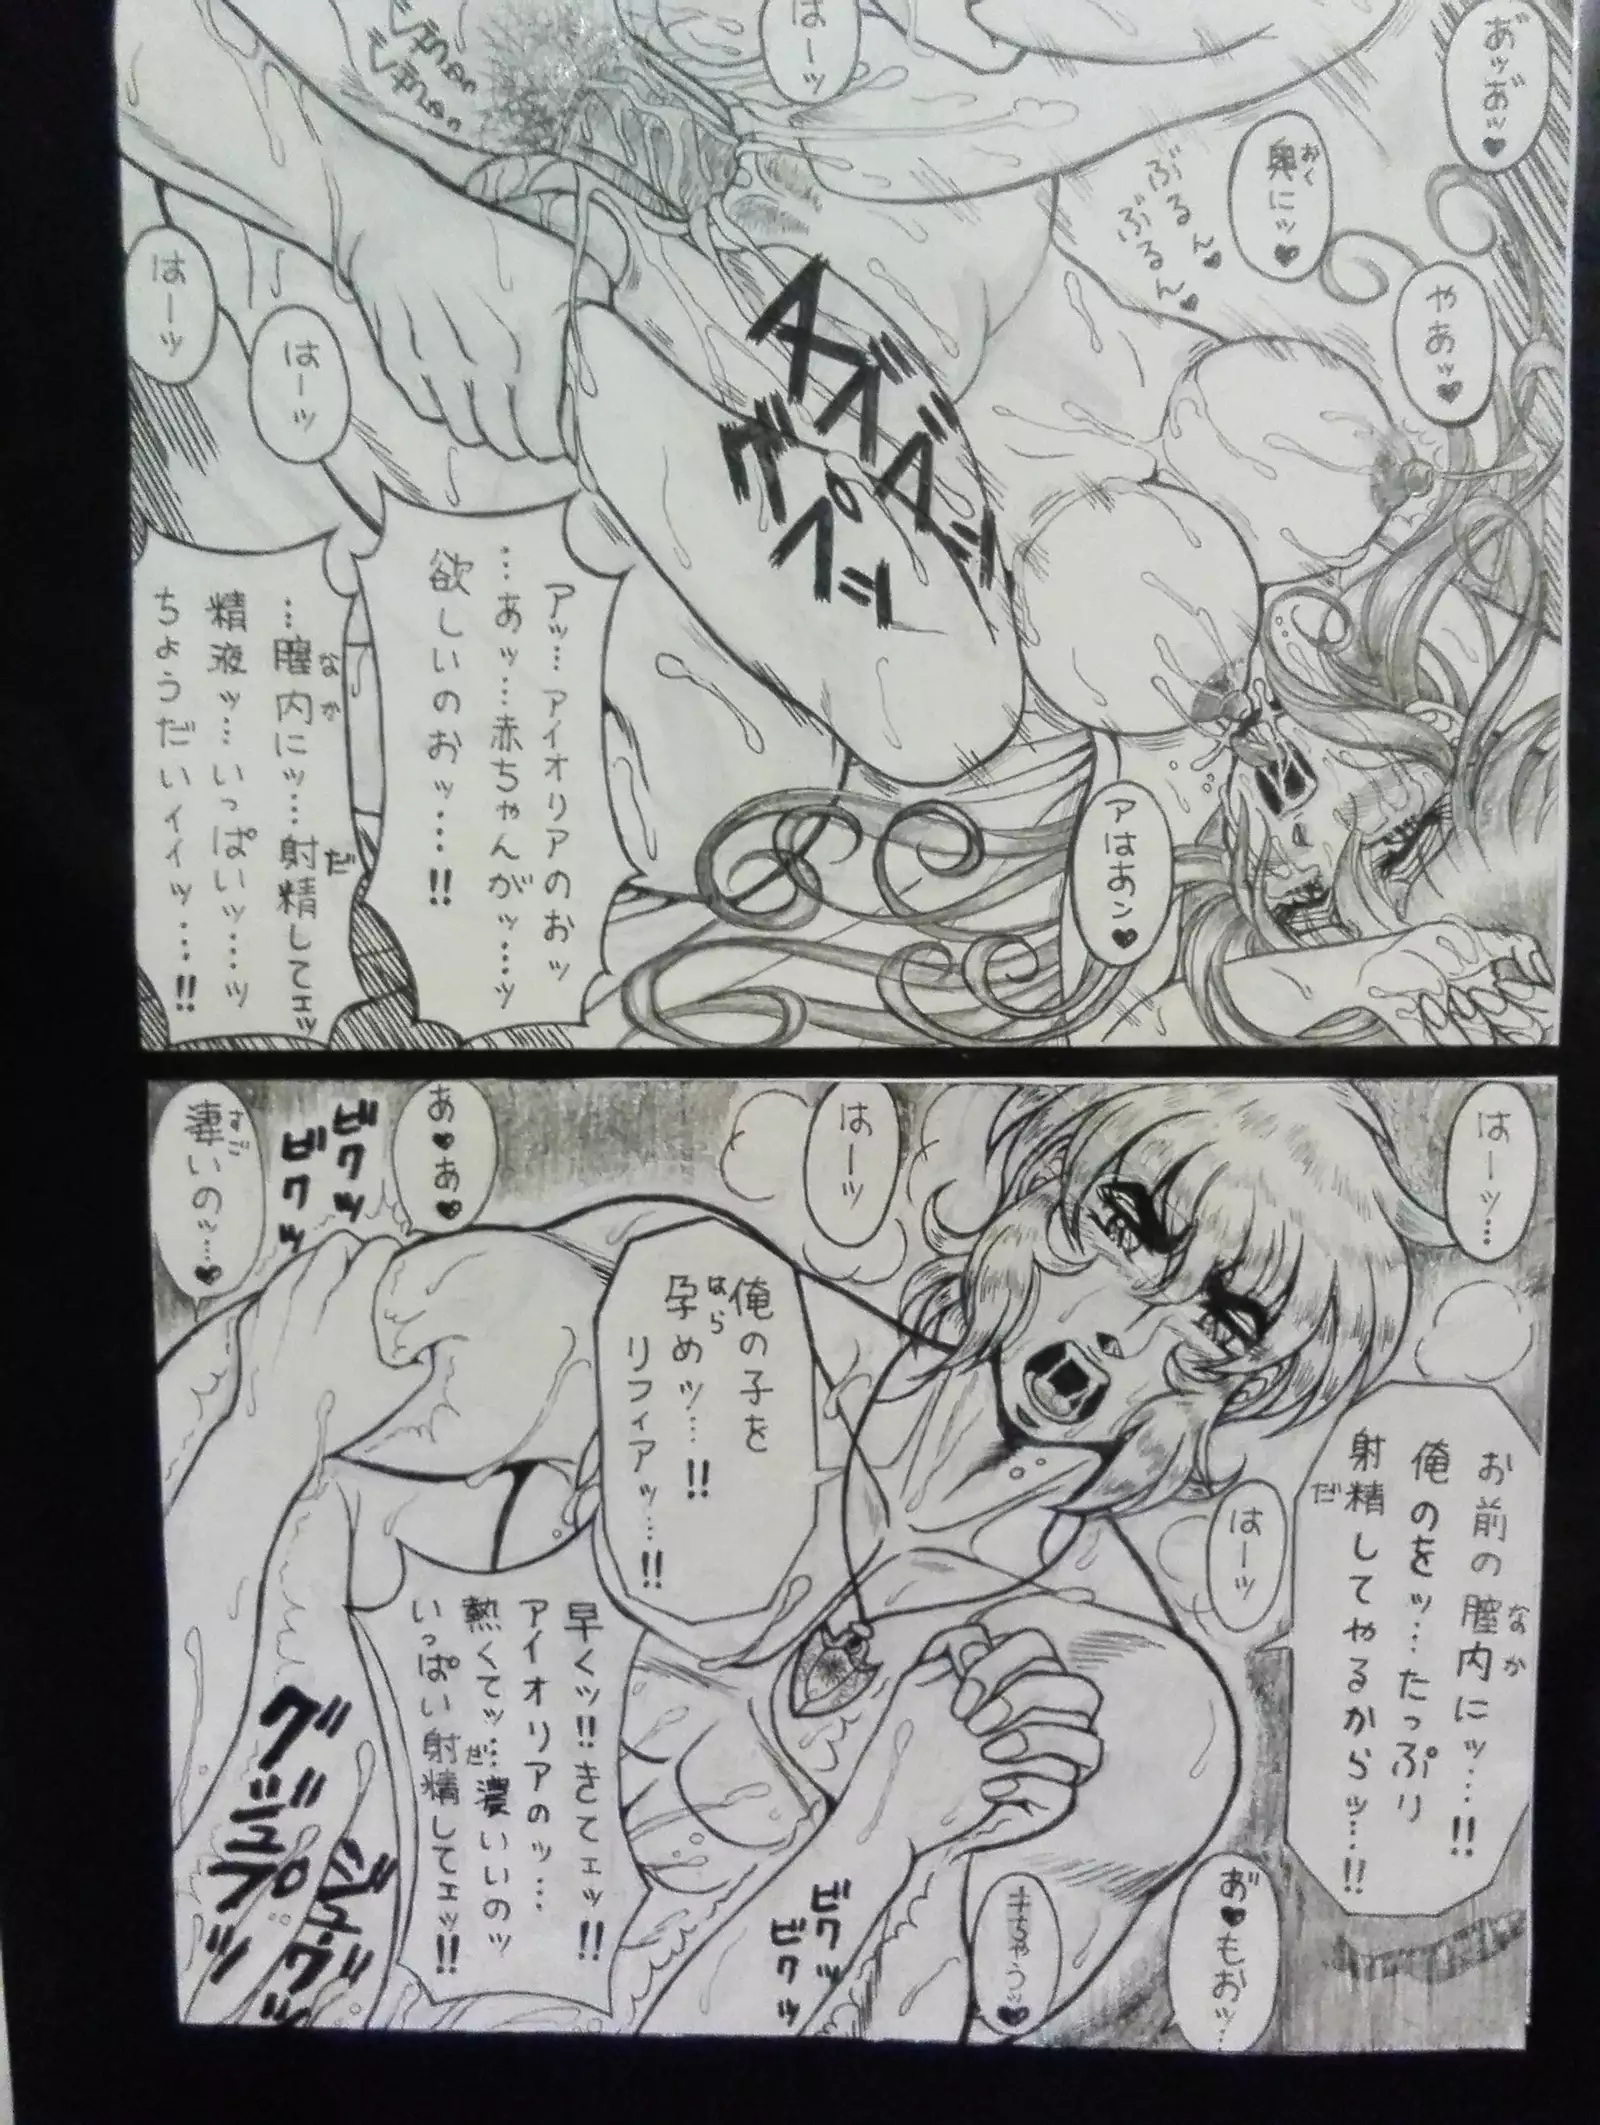 あ゛ッお゛ッ♥
はーッ
奥にッ♥
おく
やあッ♥
ぶるん♥
ぶるん♥
はーッ
はーッ
パンパンパンッ
グポッ
アッ…アイオリアのおッ
…あッ…赤ちゃんがッ…ッ
欲しいのおッ…!!
…膣内にッ…射精してェッ
なか
だ
精液ッ…いっぱいッ…ッ
ちょうだいィィッ…!!
アはあン♥
はーッ…
はーッ
あ♥あ♥
ビクッ
ビクッ
凄いのッ…♥
すご
俺の子を
孕めッ…!!
はら
リフィアッ…!!
お前の膣内にッ…!!
なか
俺のをッ…たっぷり
射精してやるからッ…!!
だ
はーッ
早くッ!!きてェッ!!
アイオリアのッ…
熱くてッ…濃いいのッ
いっぱい射精してェッ!!
だ
お゛♥もおッ…
きちゃうッ♥
ビクッ
ビクッ
グジュプッ
ジュブッ